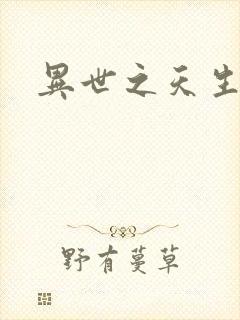 異世之天生
野有蔓草